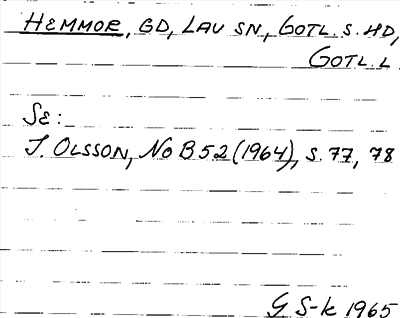 HEMMOR, GD, LAU SN, GOTL. S. HD,
GOTL. L
SE:
I. OLSSON, NOB 52 (1964), S. 77, 78
G S-k 1965